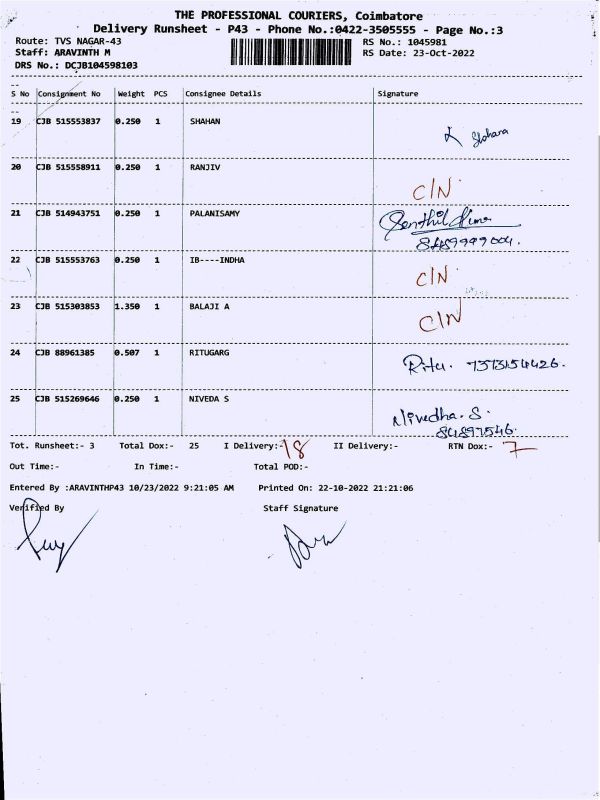 THE PROFESSIONAL COURIERS, Coimbatore
Delivery Runsheet - P43 - Phone No.:0422-3505555 - Page No.:3
Route: TVS NAGAR-43 RS No.: 1045981
Staff: ARAVINTH M RS Date: 23-Oct-2022
DRS No.: DCJB104598103
S No Consignment No Weight PCS Consignee Details Signature
19 CJB 515553837 0.250 1 SHAHAN Shahana
20 CJB 515558911 0.250 1 RANJIV C/N
21 CJB 514943751 0.250 1 PALANISAMY Senthil Kumar
22 CJB 515553763 0.250 1 IB----INDHA C/N
23 CJB 515303853 1.350 1 BALAJI A C/N
24 CJB 88961385 0.507 1 RITUGARG Ritu.
25 CJB 515269646 0.250 1 NIVEDA S Nivedha. S.
Tot. Runsheet:- 3 Total Dox:- 25 I Delivery:- 18 II Delivery:- RTN Dox:- 7
Out Time:- In Time:- Total POD:-
Entered By :ARAVINTHP43 10/23/2022 9:21:05 AM Printed On: 22-10-2022 21:21:06
Verified By Staff Signature